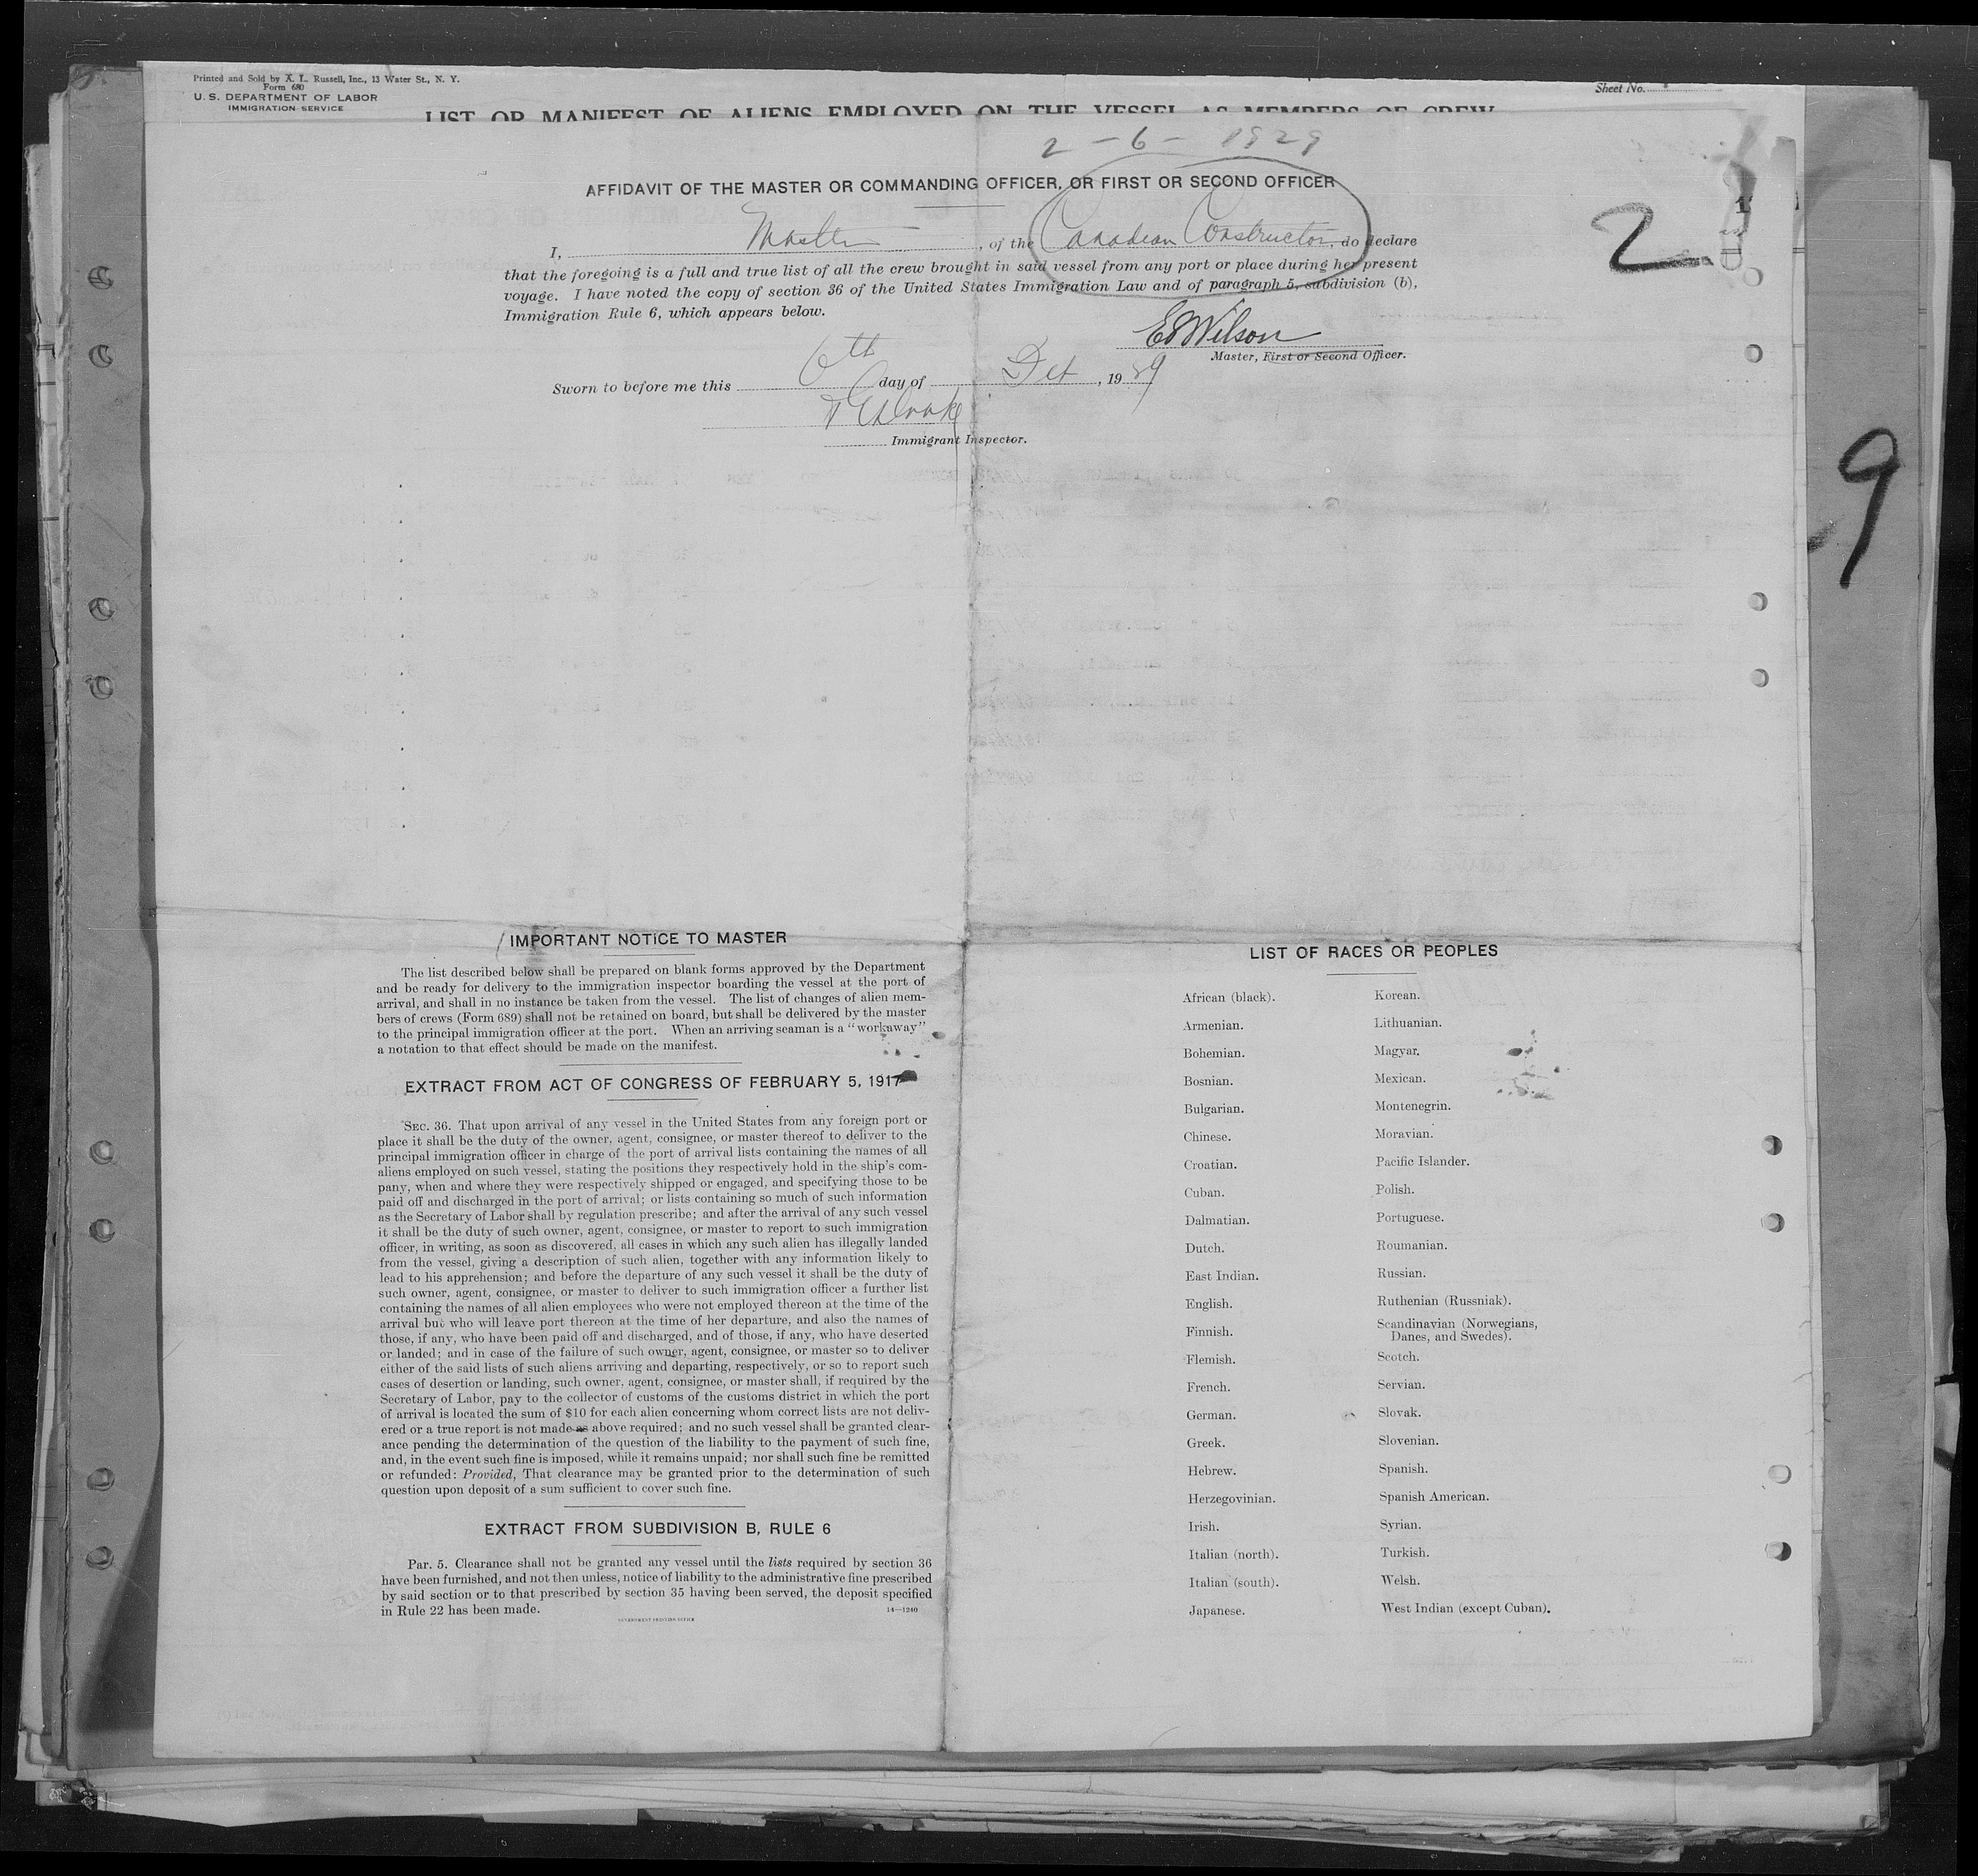 Printed and Sold by A. L. Russell, Inc., 13 Water St., N. Y.
Form 680
U. S. DEPARTMENT OF LABOR
IMMIGRATION SERVICE
Sheet No.
LIST OR MANIFEST OF ALIENS EMPLOYED ON THE VESSEL AS MEMBERS OF CREW
2 - 6 - 1929
AFFIDAVIT OF THE MASTER OR COMMANDING OFFICER, OR FIRST OR SECOND OFFICER
2
I, Master, of the Canadian Constructor, do declare
that the foregoing is a full and true list of all the crew brought in said vessel from any port or place during her present
voyage. I have noted the copy of section 36 of the United States Immigration Law and of paragraph 5, subdivision (b),
Immigration Rule 6, which appears below.
Wilson
Master, First or Second Officer.
Sworn to before me this 6th day of , 1929
Immigrant Inspector.
9
IMPORTANT NOTICE TO MASTER
The list described below shall be prepared on blank forms approved by the Department
and be ready for delivery to the immigration inspector boarding the vessel at the port of
arrival, and shall in no instance be taken from the vessel. The list of changes of alien mem-
bers of crews (Form 689) shall not be retained on board, but shall be delivered by the master
to the principal immigration officer at the port. When an arriving seaman is a "workaway"
a notation to that effect should be made on the manifest.
EXTRACT FROM ACT OF CONGRESS OF FEBRUARY 5, 1917
SEC. 36. That upon arrival of any vessel in the United States from any foreign port or
place it shall be the duty of the owner, agent, consignee, or master thereof to deliver to the
principal immigration officer in charge of the port of arrival lists containing the names of all
aliens employed on such vessel, stating the positions they respectively hold in the ship's com-
pany, when and where they were respectively shipped or engaged, and specifying those to be
paid off and discharged in the port of arrival; or lists containing so much of such information
as the Secretary of Labor shall by regulation prescribe; and after the arrival of any such vessel
it shall be the duty of such owner, agent, consignee, or master to report to such immigration
officer, in writing, as soon as discovered, all cases in which any such alien has illegally landed
from the vessel, giving a description of such alien, together with any information likely to
lead to his apprehension; and before the departure of any such vessel it shall be the duty of
such owner, agent, consignee, or master to deliver to such immigration officer a further list
containing the names of all alien employees who were not employed thereon at the time of the
arrival but who will leave port thereon at the time of her departure, and also the names of
those, if any, who have been paid off and discharged, and of those, if any, who have deserted
or landed; and in case of the failure of such owner, agent, consignee, or master so to deliver
either of the said lists of such aliens arriving and departing, respectively, or so to report such
cases of desertion or landing, such owner, agent, consignee, or master shall, if required by the
Secretary of Labor, pay to the collector of customs of the customs district in which the port
of arrival is located the sum of $10 for each alien concerning whom correct lists are not deliv-
ered or a true report is not made as above required; and no such vessel shall be granted clear-
ance pending the determination of the question of the liability to the payment of such fine,
and, in the event such fine is imposed, while it remains unpaid; nor shall such fine be remitted
or refunded: Provided, That clearance may be granted prior to the determination of such
question upon deposit of a sum sufficient to cover such fine.
EXTRACT FROM SUBDIVISION B, RULE 6
Par. 5. Clearance shall not be granted any vessel until the lists required by section 36
have been furnished, and not then unless, notice of liability to the administrative fine prescribed
by said section or to that prescribed by section 35 having been served, the deposit specified
in Rule 22 has been made.
14—1240
GOVERNMENT PRINTING OFFICE
LIST OF RACES OR PEOPLES
African (black). Korean.
Armenian. Lithuanian.
Bohemian. Magyar.
Bosnian. Mexican.
Bulgarian. Montenegrin.
Chinese. Moravian.
Croatian. Pacific Islander.
Cuban. Polish.
Dalmatian. Portuguese.
Dutch. Roumanian.
East Indian. Russian.
English. Ruthenian (Russniak).
Finnish. Scandinavian (Norwegians,
Danes, and Swedes).
Flemish. Scotch.
French. Servian.
German. Slovak.
Greek. Slovenian.
Hebrew. Spanish.
Herzegovinian. Spanish American.
Irish. Syrian.
Italian (north). Turkish.
Italian (south). Welsh.
Japanese. West Indian (except Cuban).